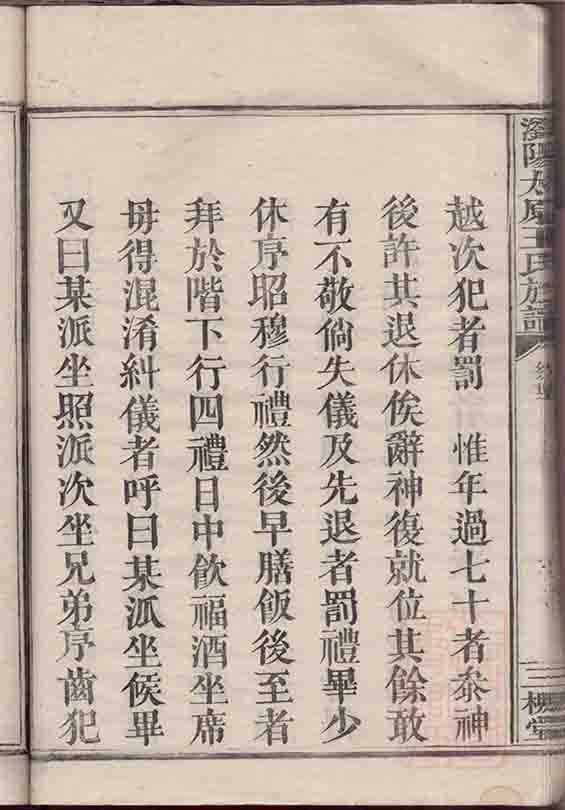 瀏陽太原王氏族譜
越次犯者罰 惟年過七十者叅神
後許其退休俟辭神復就位其餘敢
有不敬倘失儀及先退者罰禮畢少
休序昭穆行禮然後早膳飯後至者
拜於階下行四禮日中飲福酒坐席
毋得混淆糾儀者呼曰某派坐候畢
又曰某派坐照派次坐兄弟序齒犯